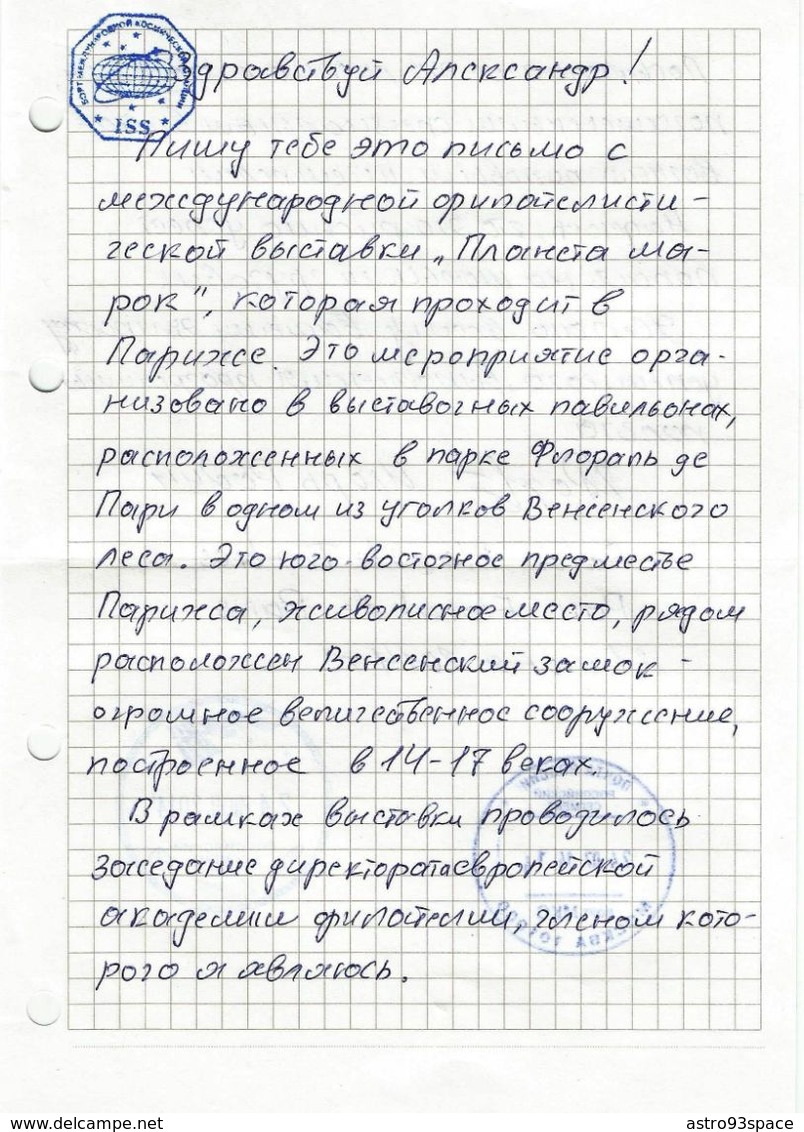 БОРТ МЕЖДУНАРОДНОЙ КОСМИЧЕСКОЙ СТАНЦИИ
ISS
Здравствуй Александр!
Пишу тебе это письмо с
международной филателисти-
ческой выставки „Планета ма-
рок", которая проходит в
Париже. Это мероприятие орга-
низовано в выставочных павильонах,
расположенных в парке Флораль де
Пари в одном из уголков Венсенского
леса. Это юго-восточное предместье
Парижа, живописное место, рядом
расположен Венсенский замок -
огромное величественное сооружение,
построенное в 14-17 веках.
В рамках выставки проводилось
заседание директората европейской
академии филателии, членом кото-
рого я являюсь.
delcampe.net
astro93space